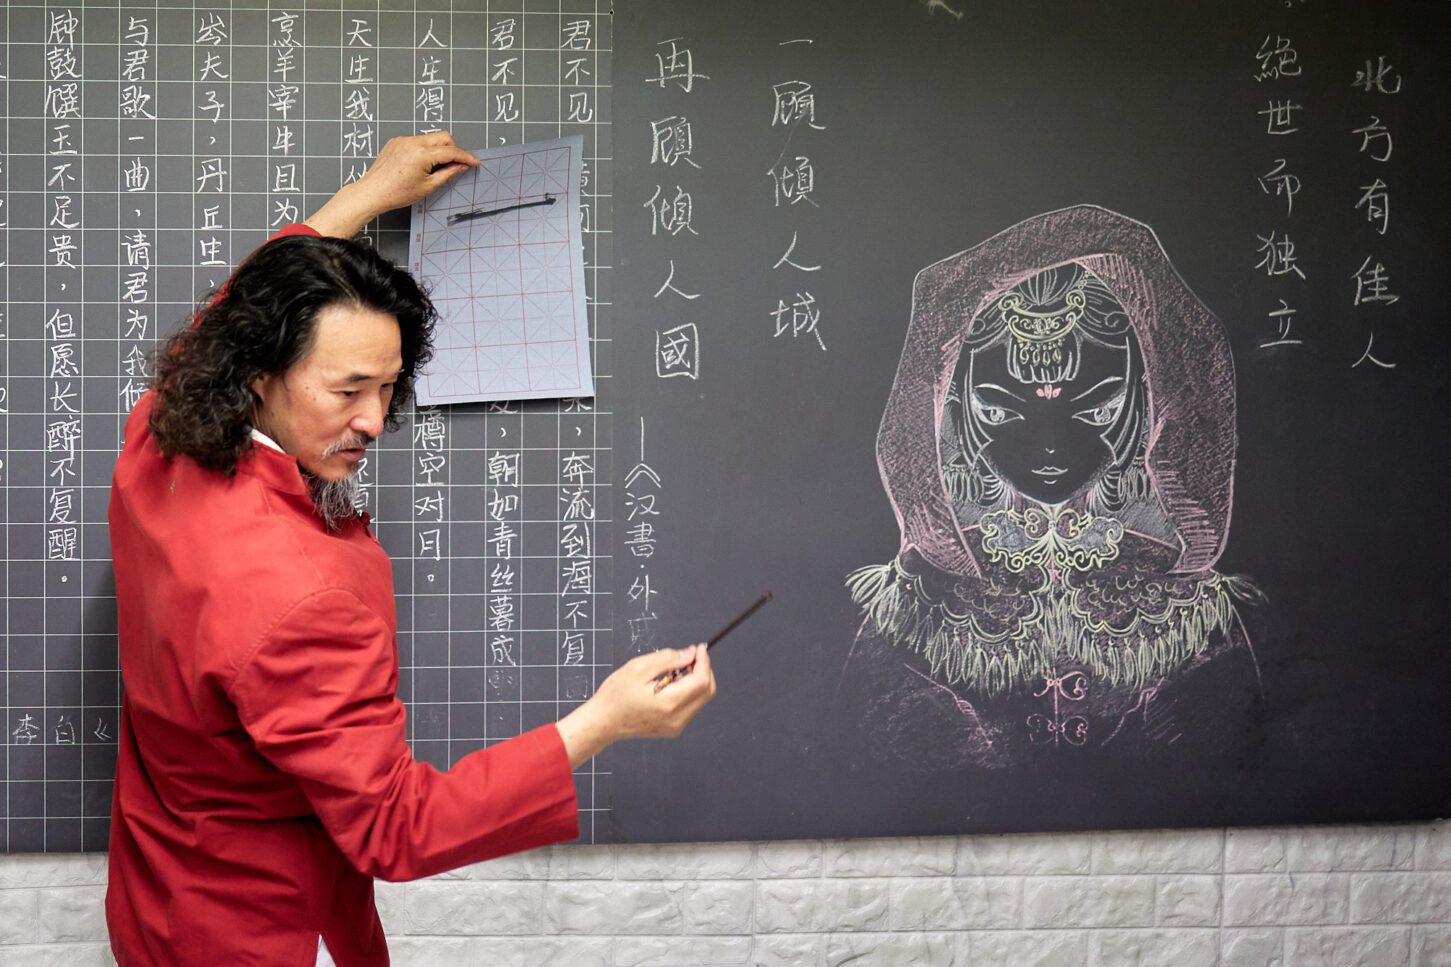 北方有佳人
絶世而独立
一顧傾人城
再顧傾人國
——《汉書·外戚
君不见 来，奔流到海不复回
君不见， 发，朝如青丝暮成
人生得 樽空对月。
天生我材
烹羊宰牛且为
岑夫子，丹丘生，
与君歌一曲，请君为我倾
钟鼓馔玉不足贵，但愿长醉不复醒。
李白《